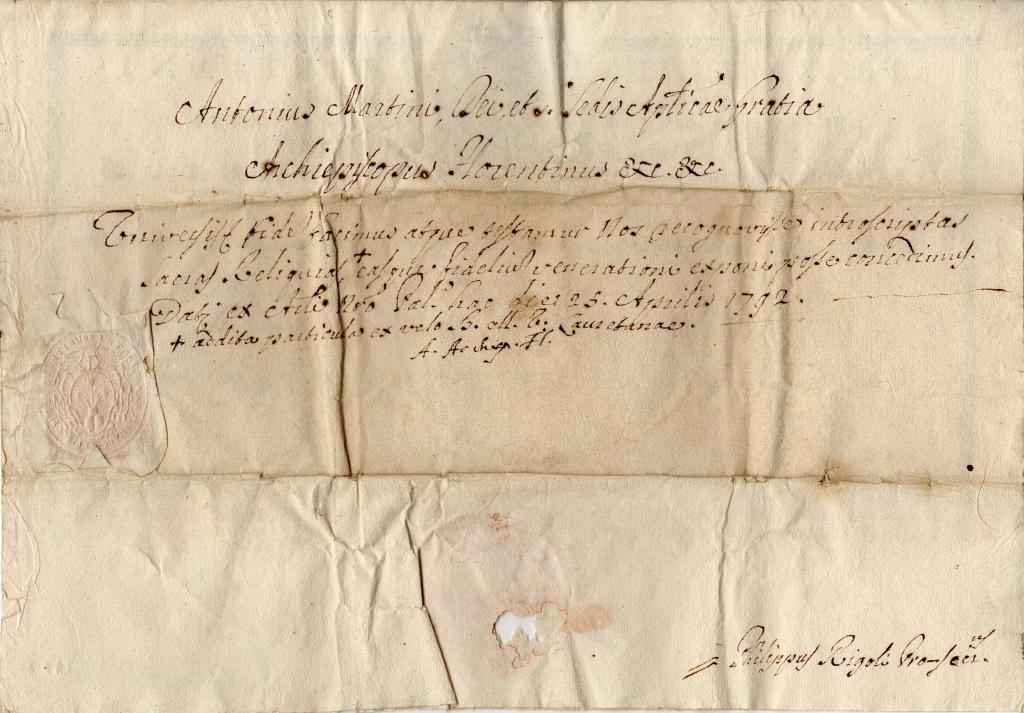 Antonius Martini, Dei, et S. Sedis Aplicae gratia
Archiepiscopus Florentinus &c. &c.
Universis fidem facimus atque testamur Nos recognovisse introscriptas
Sacras Reliquias, + easque fidelium venerationi exponi posse concedimus.
Datj ex Nro Pal. hac die 25. Aprilis 1792.
+ addita particula ex velo B. M. V. Lauretanae.
A. Archep. Fl.
Philippus Rigoli Pro-Secrius.